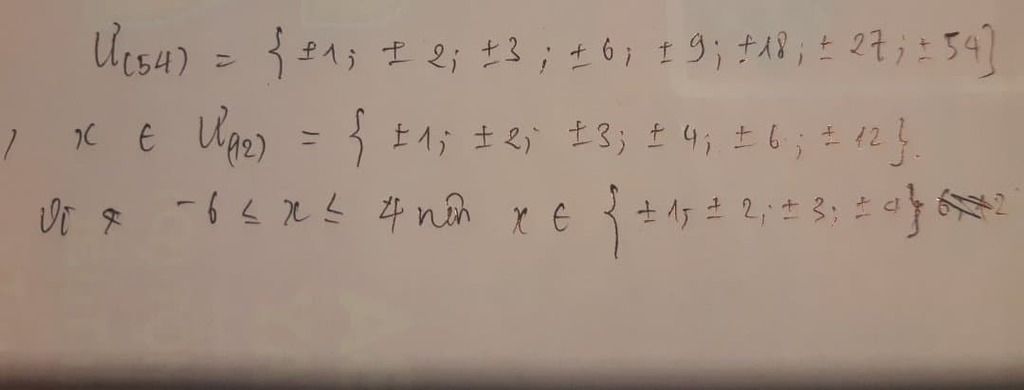 Ư(54) = { ±1; ± 2; ±3; ±6; ±9; ±18; ± 27; ± 54}
, x ∈ Ư(12) = { ±1; ±2; ±3; ± 4; ± 6; ± 12}.
Vì -6 ≤ x ≤ 4 nên x ∈ { ±1; ± 2; ± 3; ± 4}